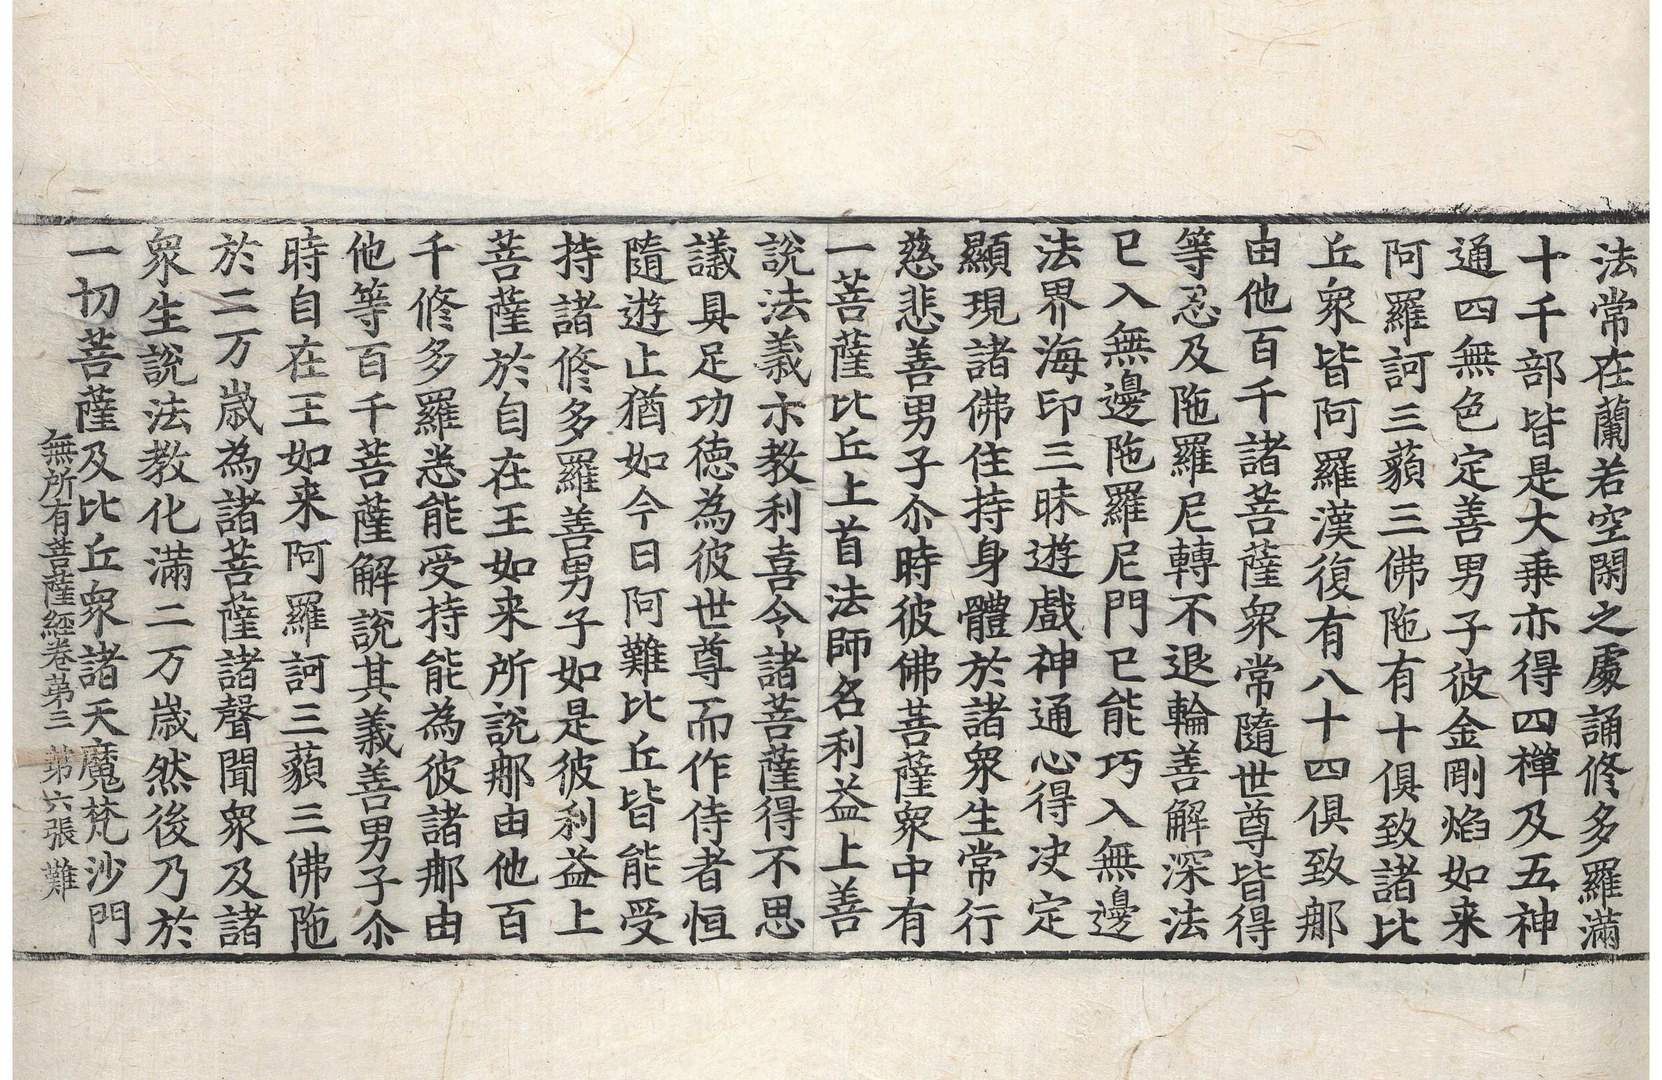 法常在蘭若空閑之處誦修多羅滿
十千部皆是大乗亦得四禪及五神
通四無色定善男子彼金剛焰如来
阿羅訶三藐三佛陁有十俱致諸比
丘衆皆阿羅漢復有八十四俱致郍
由他百千諸菩薩衆常隨世尊皆得
等忍及陁羅尼轉不退輪善解深法
已入無邊陁羅尼門已能巧入無邊
法界海印三昧遊戲神通心得决定
顯現諸佛住持身體於諸衆生常行
慈悲善男子尒時彼佛菩薩衆中有
一菩薩比丘上首法師名利益上善
說法義示教利喜令諸菩薩得不思
議具足功徳為彼世尊而作侍者恒
隨遊止猶如今日阿難比丘皆能受
持諸修多羅善男子如是彼利益上
菩薩於自在王如来所說郍由他百
千修多羅悉能受持能為彼諸郍由
他等百千菩薩解說其義善男子尒
時自在王如来阿羅訶三藐三佛陁
於二万歲為諸菩薩諸聲聞衆及諸
衆生說法教化滿二万歲然後乃於
一切菩薩及比丘衆諸天魔梵沙門
無所有菩薩經卷第三 第六張 難